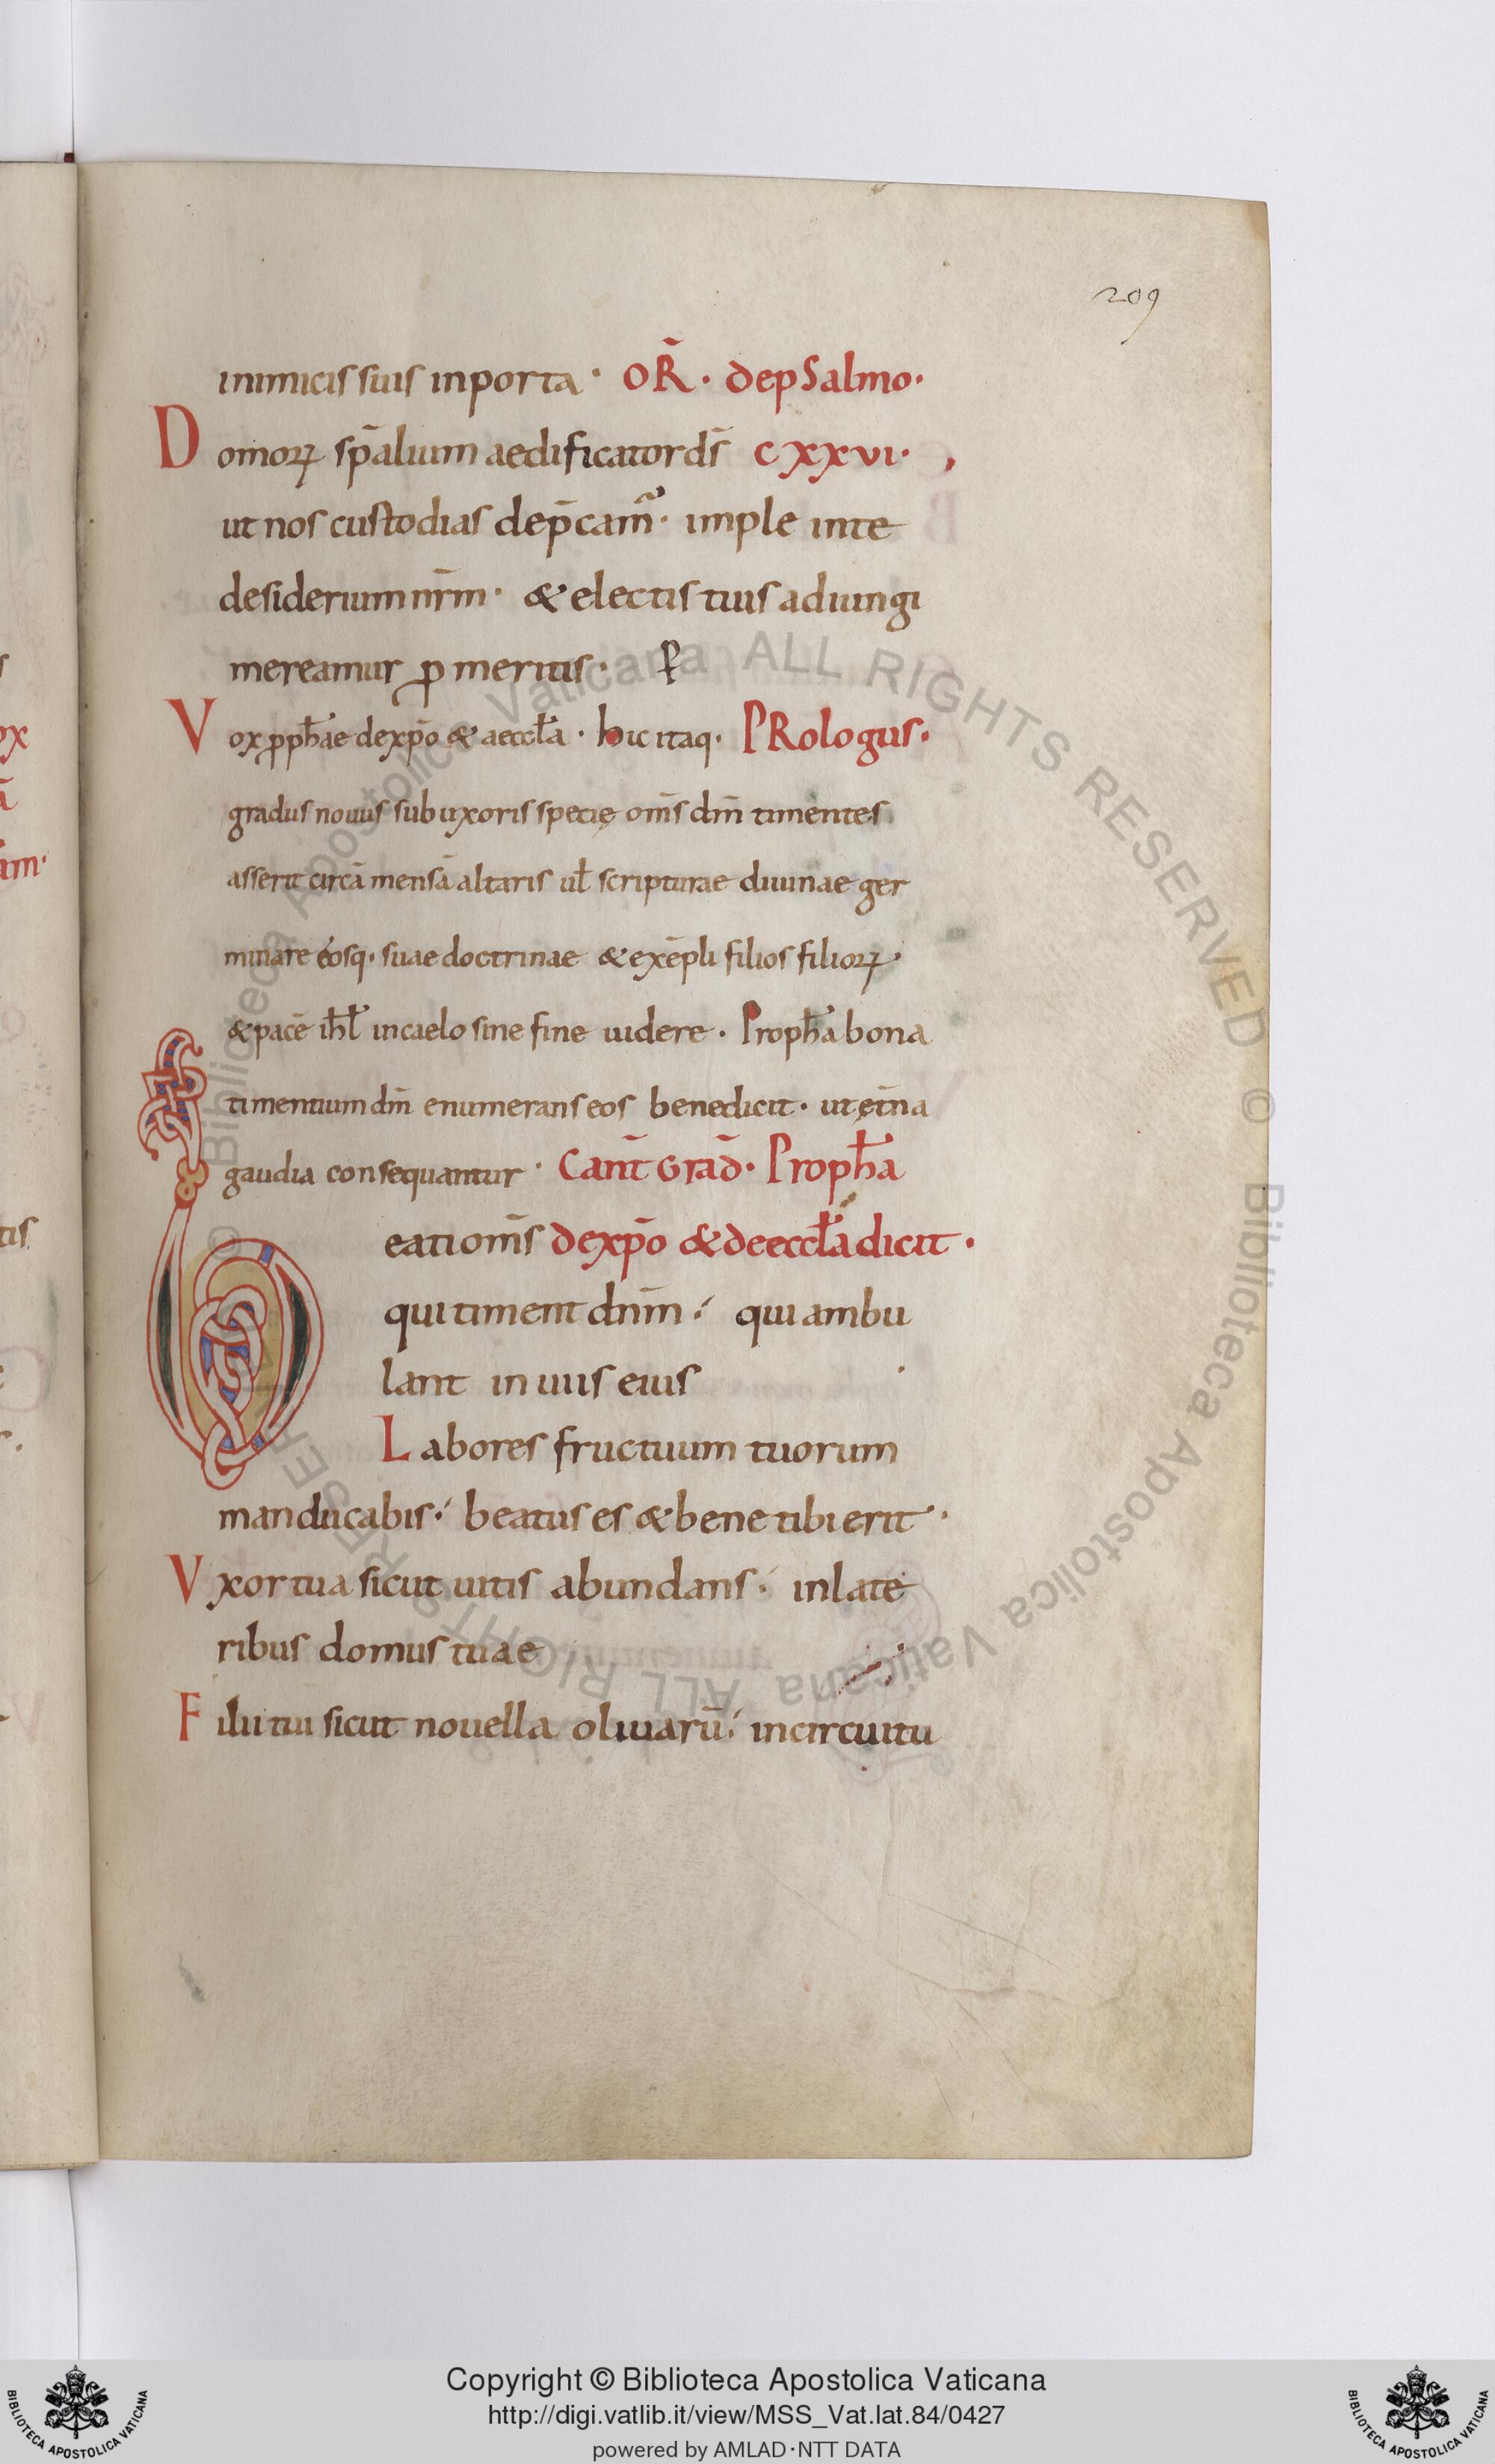 209
inimicis suis inporta · OR̄ · de pSalmo ·
Domoꝝ sp̄alium aedificator ds̄ CXXVI ·
ut nos custodias dep̄cam̄ · imple in te
desiderium nr̄m · & electis tuis adiungi
mereamur ꝓ meritis · P
Vox ꝓph̄ae de xp̄o & aeccl̄a · hic itaq · PRologus ·
gradus nouus sub uxoris specię om̄s dm̄ timentes
asserit circā mensā altaris ul̄ scripturae diuinae ger
minare eosq · suae doctrinae & exēpli filios filioꝝ ·
& pacē ihl̄ in caelo sine fine uidere · Proph̄a bona
timentium dm̄ enumerans eos benedicit · ut ęt̄na
gaudia consequantur · Cant̄ Grad̄ · Proph̄a
Beati om̄s de xp̄o & de eccl̄a dicit ·
qui timent dn̄m ·́ qui ambu
lant in uiis eius
Labores fructuum tuorum
manducabis ·́ beatus es & bene tibi erit ·
Vxor tua sicut uitis abundans ·́ in late
ribus domus tuae
Filii tui sicut nouella oliuarū ·́ in circuitu
Copyright © Biblioteca Apostolica Vaticana
http://digi.vatlib.it/view/MSS_Vat.lat.84/0427
powered by AMLAD·NTT DATA